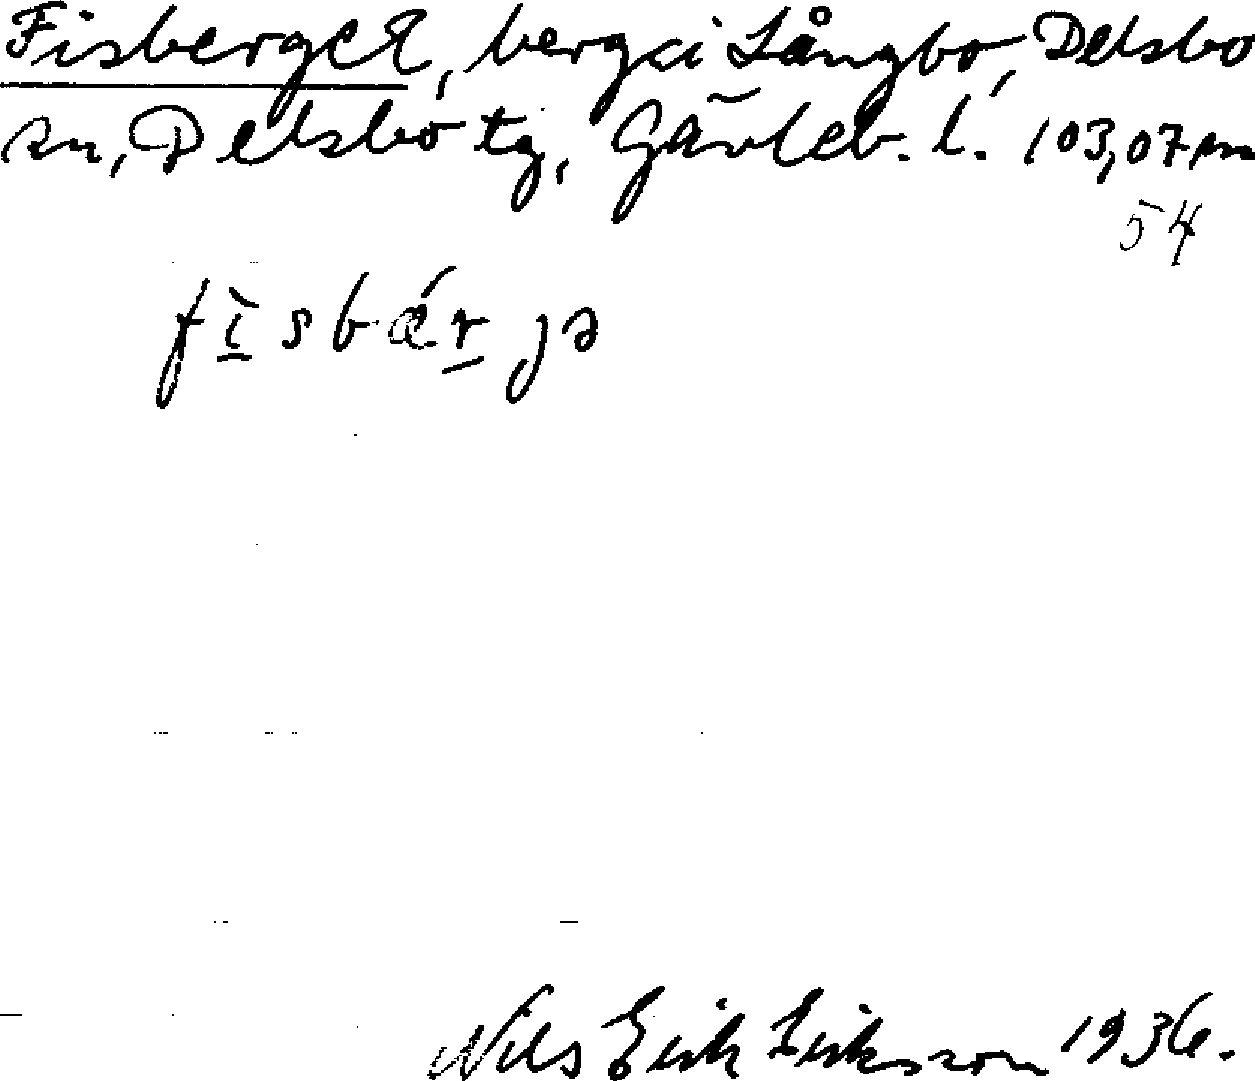 Fisberget, berg i Långbo, Delsbo
sn, Delsbo tg, Gävleb. l. 103,07 m
54
fìsbǽrjə
Nils Erik Eriksson 1936.